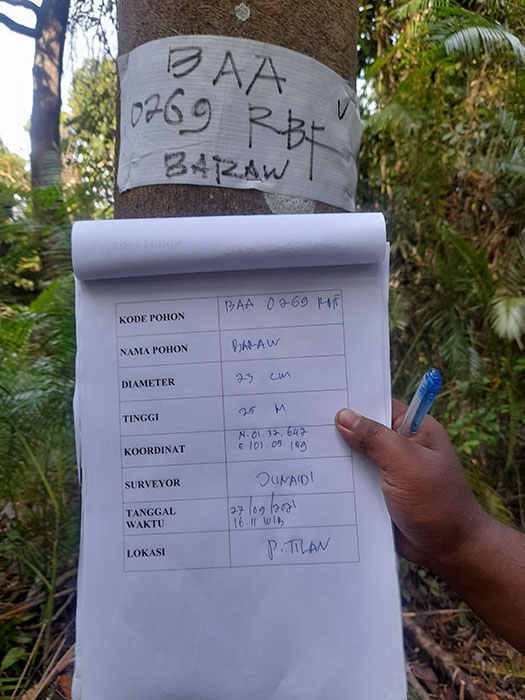 BAA
0269 RBF
BARAW
KODE POHON BAA 0269 RBF
NAMA POHON BARAW
DIAMETER 23 cm
TINGGI 25 M
KOORDINAT N.01.32.642
E.101.05.109
SURVEYOR JUNAIDI
TANGGAL WAKTU 27/09/2021
16.11 WIB
LOKASI P. TILAN